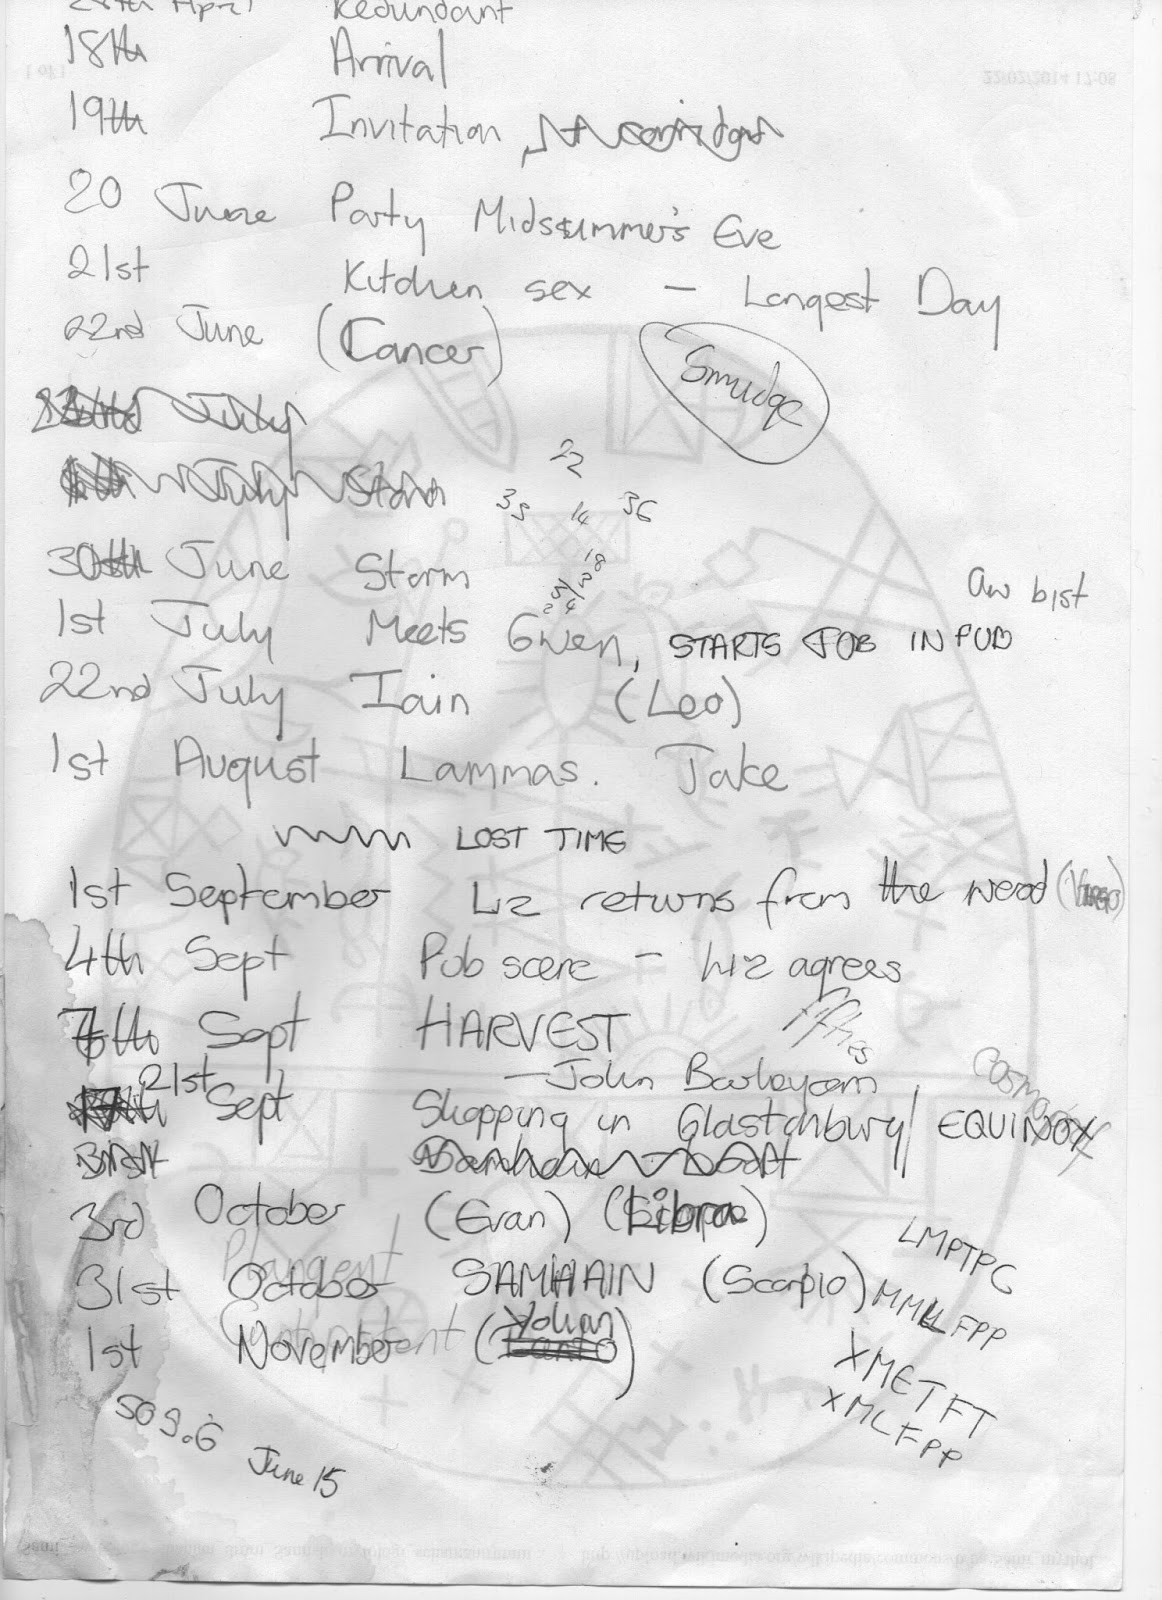 Redundant
18th Arrival
19th Invitation
20 June Party Midsummer's Eve
21st Kitchen sex – Longest Day
22nd June (Cancer)
Smudge
July
July Storm
22
33 14 36
30th June Storm
aw bist
1st July Meets Gwen, STARTS JOB IN PUB
22nd July Iain (Leo)
1st August Lammas. Jake
LOST TIME
1st September Liz returns from the wood (Virgo)
4th Sept Pub scene – Liz agrees
7th Sept HARVEST
– John Barleycorn
21st Sept Shopping in Glastonbury/ EQUINOX
31st
3rd October (Evan) (Libra)
Plangent
31st October SAMHAIN (Scorpio)
1st November
LMPTPC
MMLFPP
XMETFT
XMLFPP
509.6 June 15
22/02/2014 17:08
1 of 1